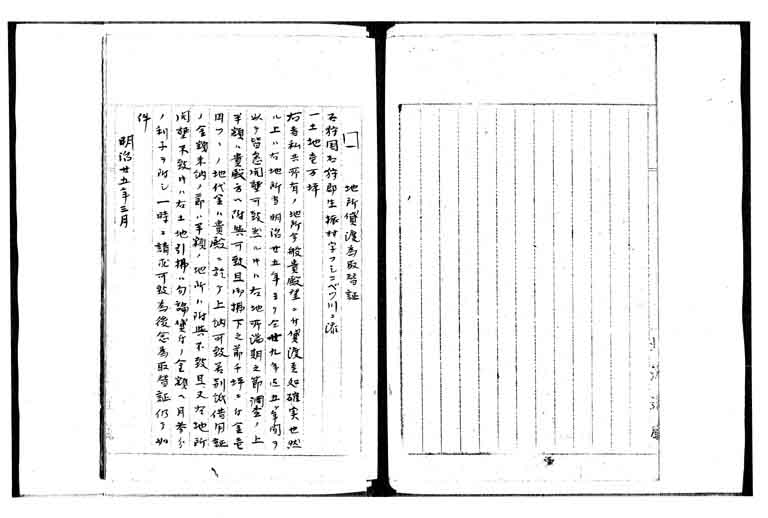 地所貸渡為取替証
石狩国石狩郡生振村字フシコベツ川ニ添
一土地壱万坪
右者私共所有ノ地所今般貴殿望ニ付貸渡之処確実也然
ル上ハ右地所当明治廿五年ヨリ仝廿九年迄五ヶ年間ヲ
以テ皆悉開墾可致然ル片ハ右地所満期之節調査ノ上
半額ハ貴殿方ヘ附与可致且御払下之節千坪ニ付金壱
円フヽノ地代金ハ貴殿ニ於テ上納可致若別紙借用証
ノ金額未納ノ節ハ半額ノ地所ハ附与不致且又右地所
開墾不致片ハ右土地引揚ハ勿論貸付ノ金額ヘ月参分
ノ利子ヲ附シ一時ニ請求可致為後念為取替証仍テ如
件
明治廿五年三月